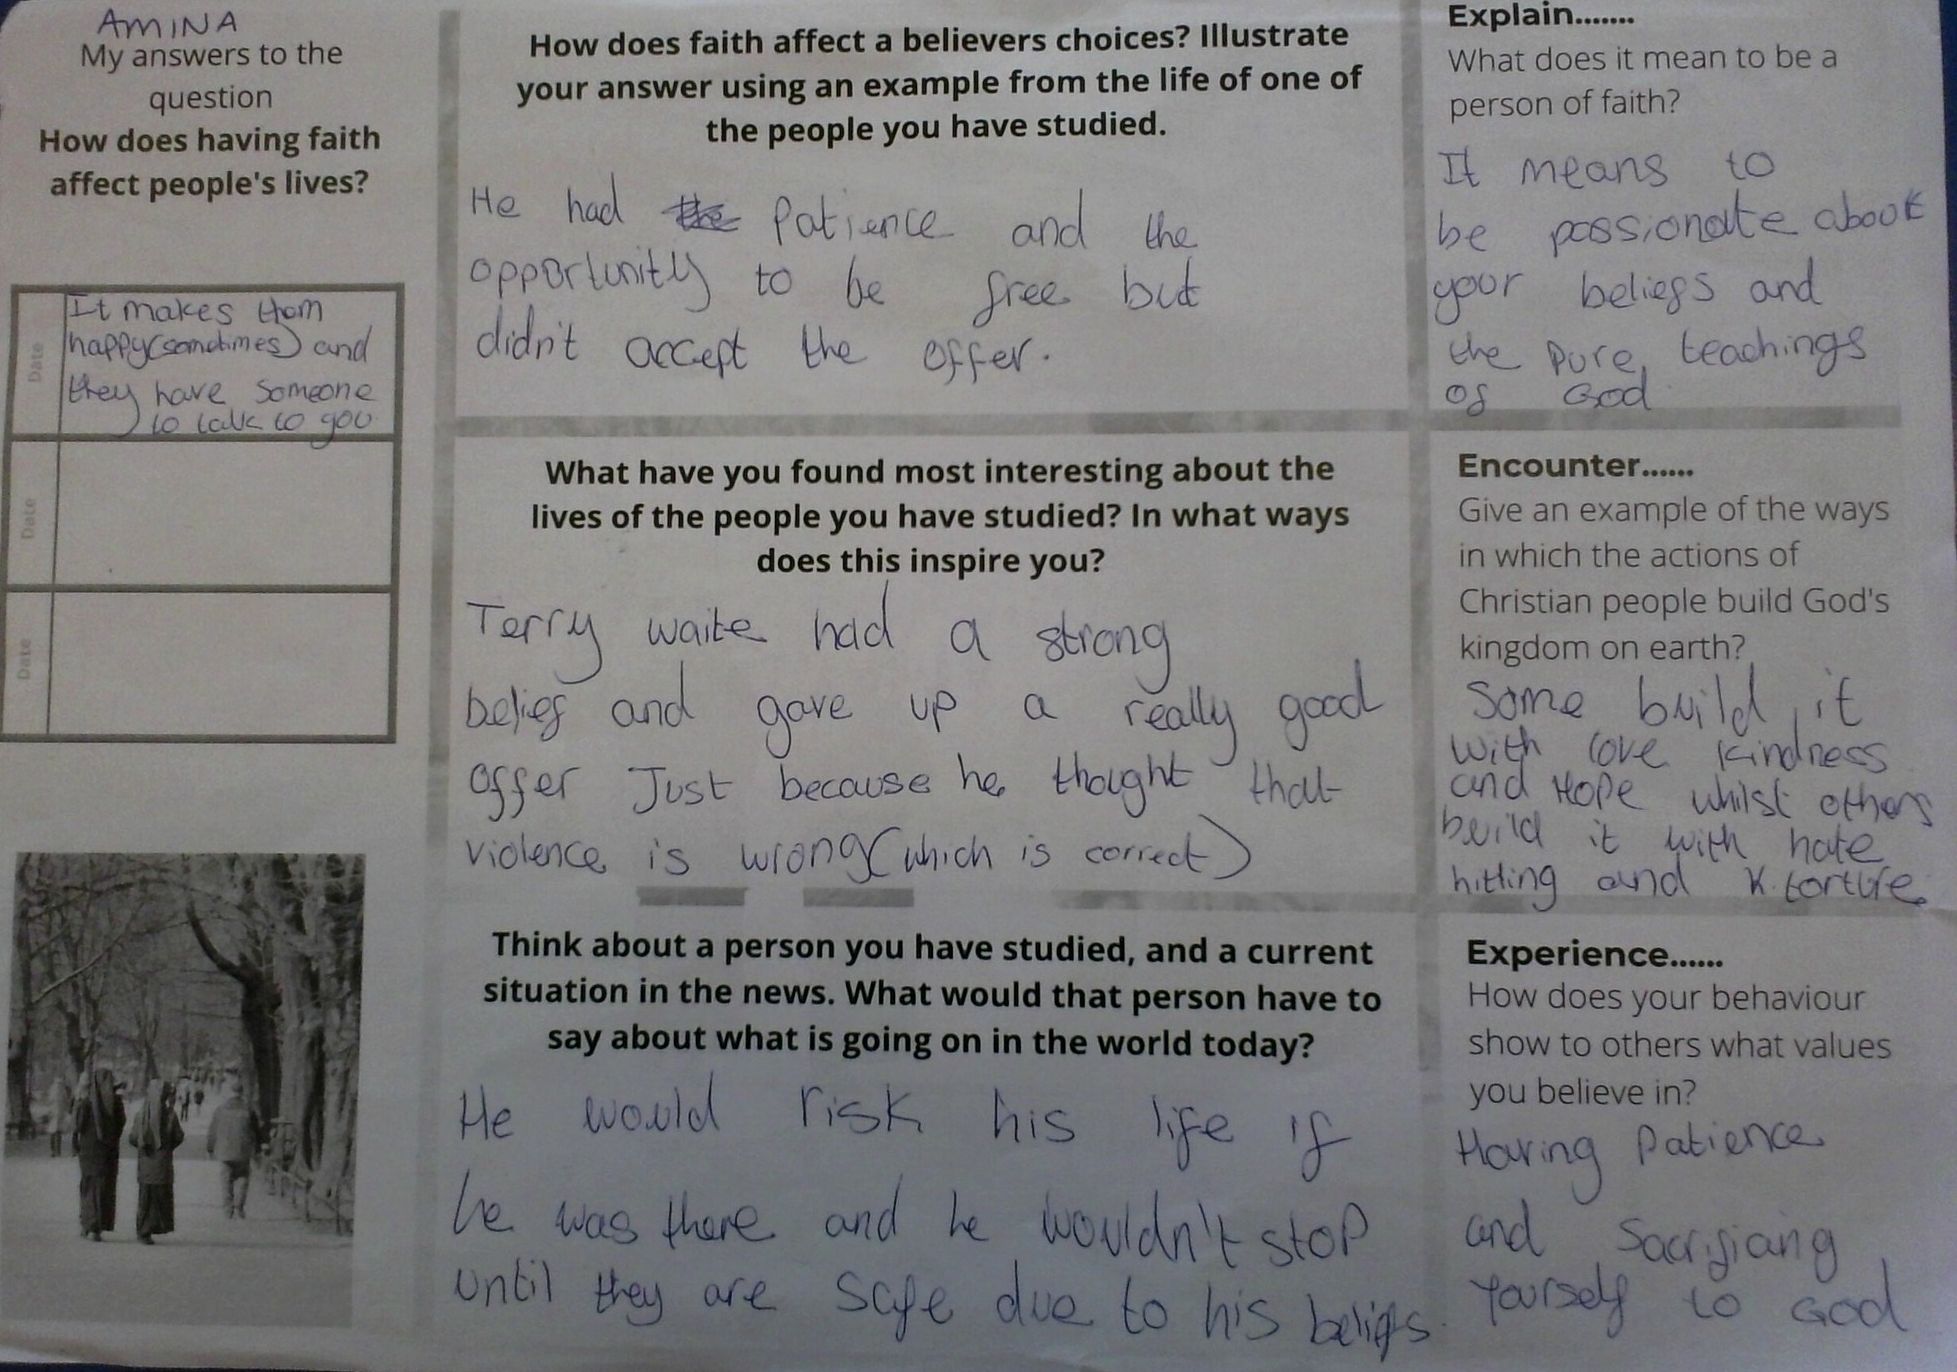 AMINA
My answers to the
question
How does having faith
affect people's lives?
Date
It makes them
happy(sometimes) and
they have someone
to talk to you
Date
Date
How does faith affect a believers choices? Illustrate
your answer using an example from the life of one of
the people you have studied.
He had the Patience and the
opportunity to be free but
didn't accept the offer.
What have you found most interesting about the
lives of the people you have studied? In what ways
does this inspire you?
Terry waite had a strong
belief and gave up a really good
offer Just because he thought that
violence is wrong(which is correct)
Think about a person you have studied, and a current
situation in the news. What would that person have to
say about what is going on in the world today?
He would risk his life if
he was there and he wouldn't stop
until they are safe due to his beliefs.
Explain.......
What does it mean to be a
person of faith?
It means to
be passionate about
your beliefs and
the pure teachings
of God
Encounter......
Give an example of the ways
in which the actions of
Christian people build God's
kingdom on earth?
Some build it
with love kindness
and Hope whilst others
build it with hate
hitting and K. torture.
Experience......
How does your behaviour
show to others what values
you believe in?
Having Patience
and Sacrifiang
Yourself to God